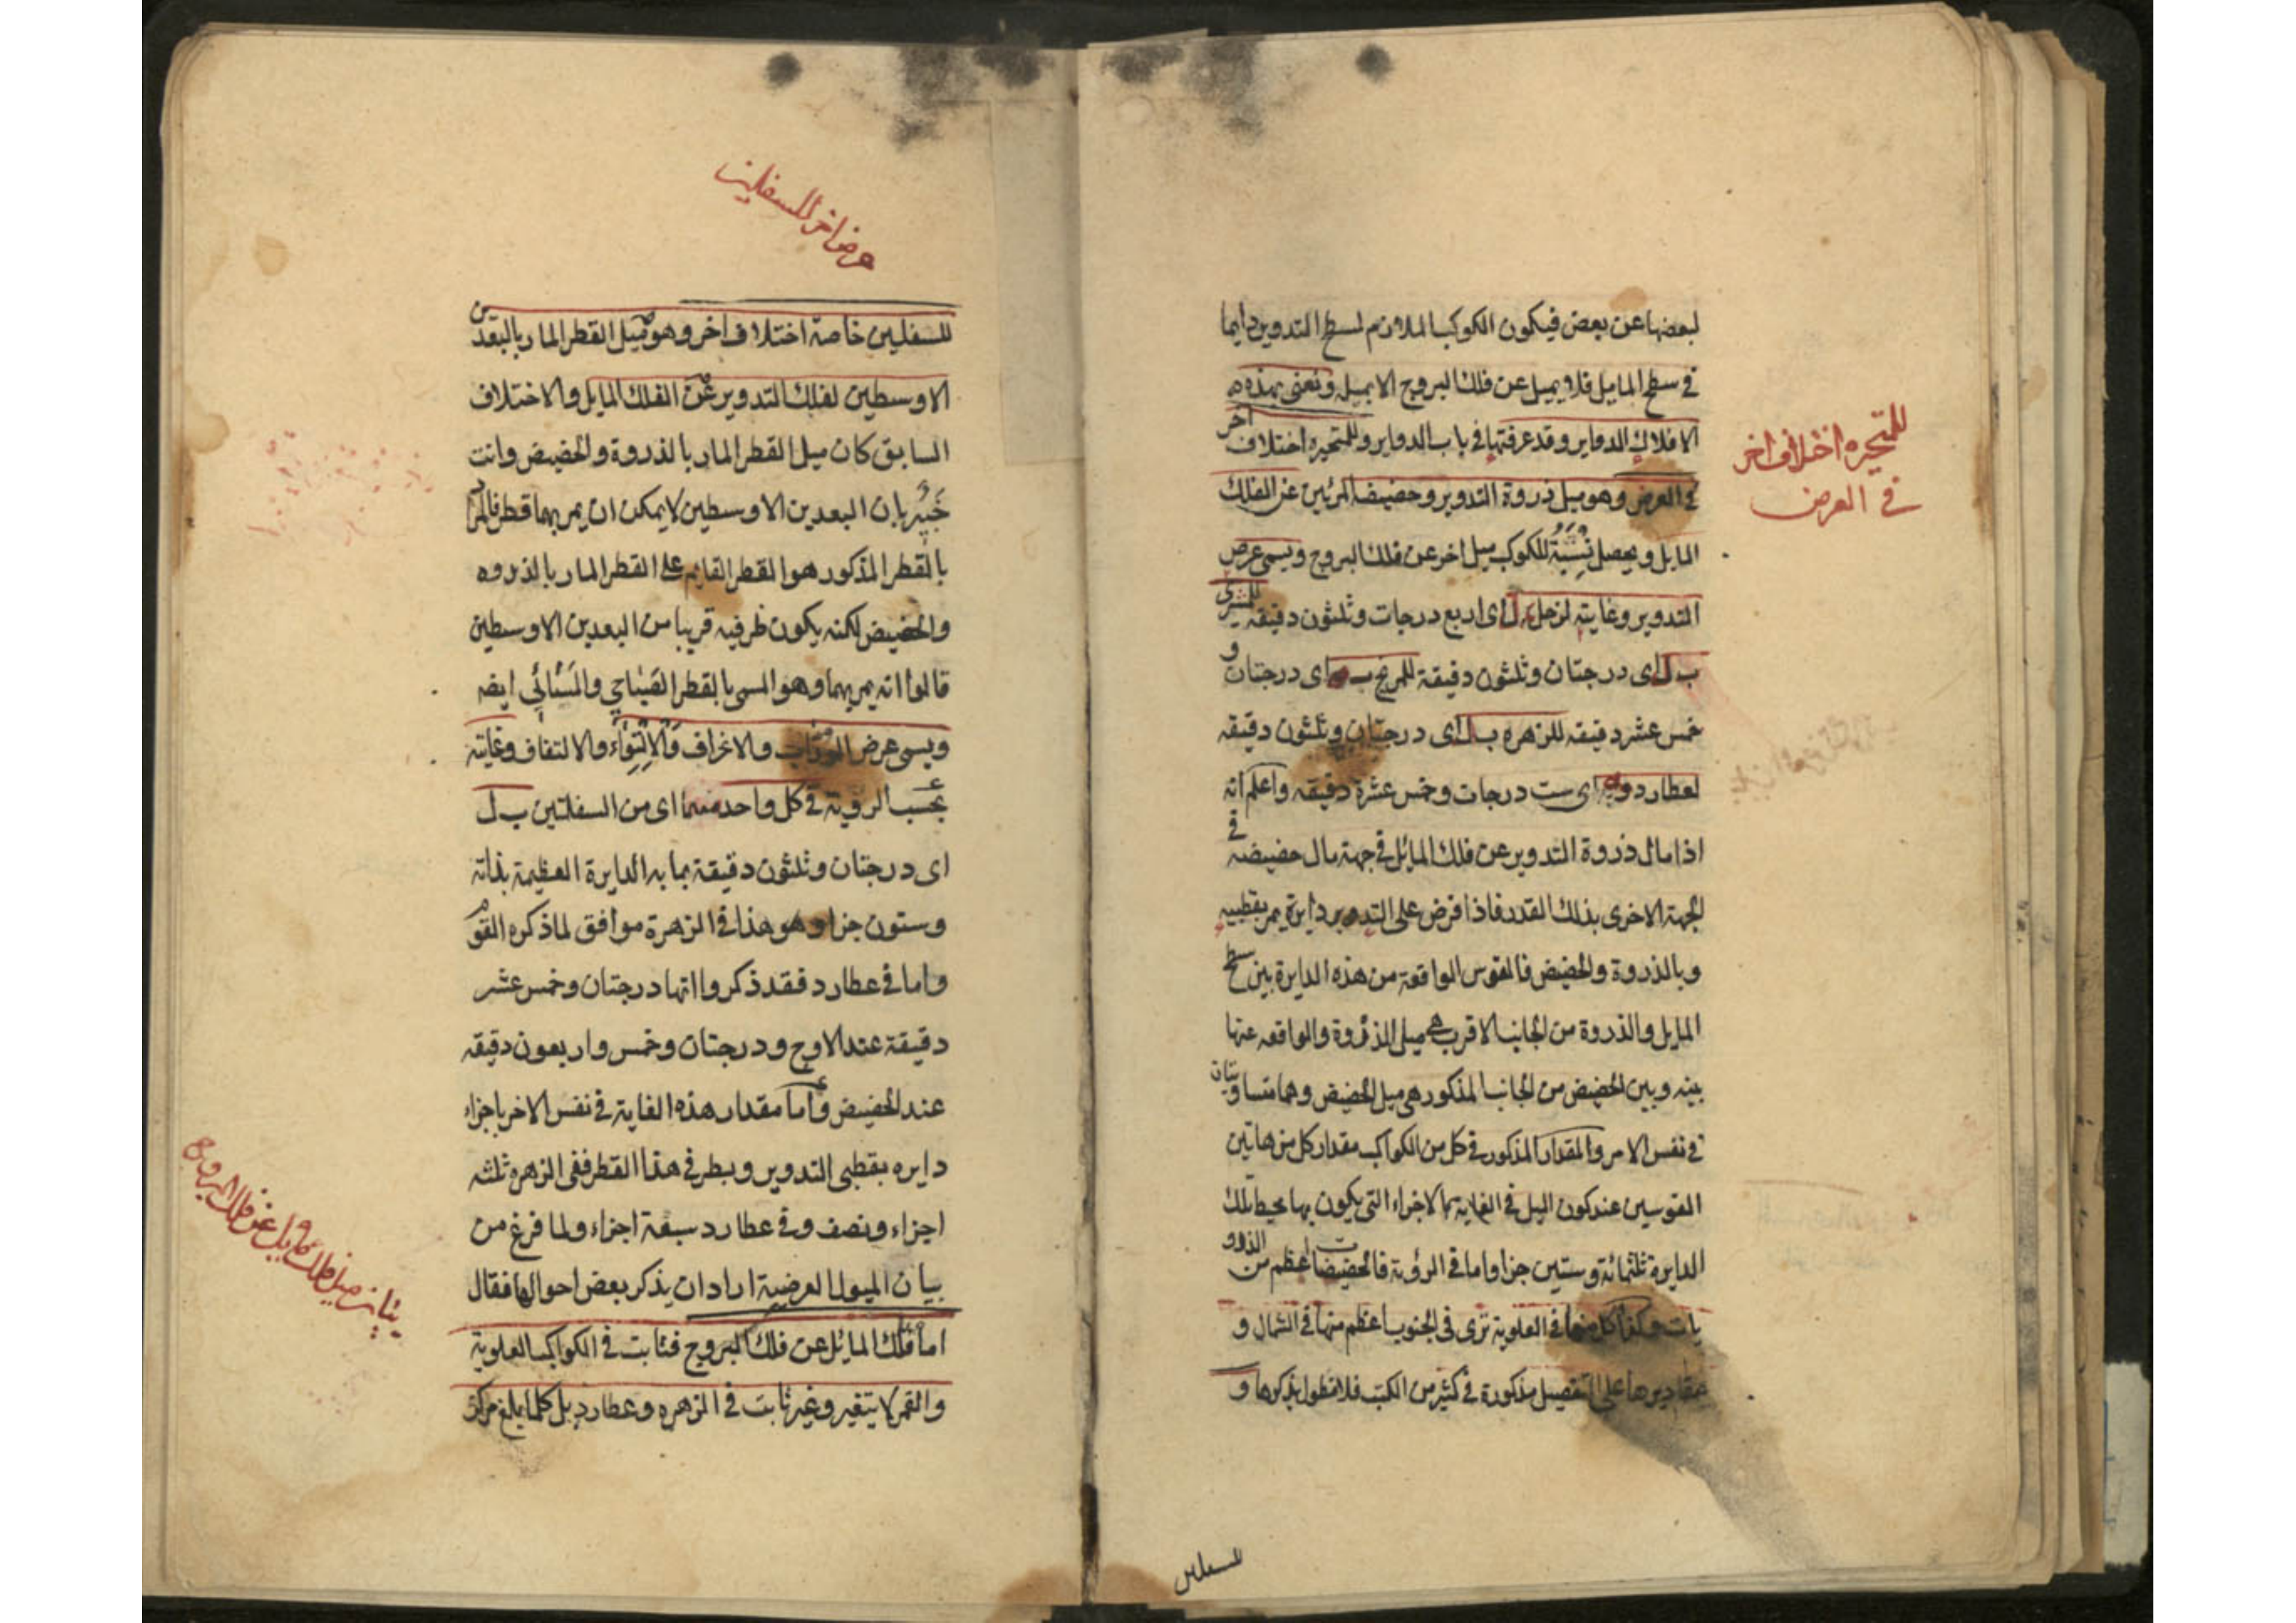 لبعضها عن بعض فيكون الكوكب الملازم لسطح التدوير دايما
في سطح المايل فلا يميل عن فلك البروج الا بميله ونعنى بهذه
الافلاك الدواير وقد عرفتها في باب الدواير وللمتحيره اختلاف اخر
في العرض وهو ميل ذروة التدوير وحضيضه المرئين عن الفلك
المايل ويحصل للكوكب ميل اخر عن فلك البروج ويسمى عرض
التدوير وغايته لزحل د ل اى اربع درجات وثلثون دقيقة للمشترى
ب ل اى درجتان وثلثون دقيقة للمريخ ب يه اى درجتان و
خمس عشر دقيقه للزهره ب ل اى درجتان وثلثون دقيقه
لعطارد و يه اى ست درجات وخمس عشرة دقيقه واعلم انه
اذا مال ذروة التدوير عن فلك المائل في جهة مال حضيضه في
الجهة الاخرى بذلك القدر فاذا فرض على التدوير دايرة يمر بقطبيه
وبالذروة والحضيض فالقوس الواقعة من هذه الدايرة بين سطح
المايل والذروة من الجانب الاقرب هي ميل الذروة والواقعه عنها
بينه وبين الحضيض من الجانب المذكور هي ميل الحضيض وهما متساويتان
في نفس الامر والمقدار المذكور في كل من الكواكب مقدار كل من هاتين
القوسين عند كون الميل في الغاية بالاجزاء التى يكون بها محيط تلك
الدايرة ثلثمائة وستين جزا واما في الرؤية فالحضيضيات اعظم من الذرو
يات وكذا كل منهما في العلوية ترى في الجنوب اعظم منها في الشمال و
مقاديرها على التفصيل مذكورة في كثير من الكتب فلا نطول بذكرها و
للمتحيره اختلاف اخر
في العرض
للسفليين
عرض اخر للسفليين
للسفليين خاصة اختلاف اخر وهو ميل القطر المار بالبعدين
الاوسطين لفلك التدوير عن الفلك المايل والاختلاف
السابق كان ميل القطر المار بالذروة والحضيض وانت
خبير بان البعدين الاوسطين لا يمكن ان يمر بهما قطر فالمراد
بالقطر المذكور هو القطر القايم على القطر المار بالذروه
والحضيض لكنه يكون طرفيه قريبا من البعدين الاوسطين
قالوا انه يمر بهما وهو المسمى بالقطر الصباحي والمسائي ايضه
ويسمى عرض الوراب والانحراف والالتواء والالتفاف وغايته
بحسب الرؤية في كل واحد منهما اى من السفلتين ب ل
اى درجتان وثلثون دقيقة بما به الدايرة العظيمة ثلثمائة
وستون جزا وهو هذا في الزهرة موافق لما ذكره القوم
واما في عطارد فقد ذكروا انها درجتان وخمس عشر
دقيقة عند الاوج ودرجتان وخمس واربعون دقيقه
عند الحضيض واما مقدار هذه الغاية في نفس الاخر باجزاء
دايره بقطبى التدوير وبطرفي هذا القطر ففى الزهره ثلثه
اجزاء ونصف وفي عطارد سبعة اجزاء ولما فرغ من
بيان الميول العرضية اراد ان يذكر بعض احوالها فقال
اما فلك المايل عن فلك البروج فثابت في الكواكب العلوية
والقمر لا يتغير وغير ثابت في الزهره وعطارد بل كلما بلغ مركز
بيان ميل فلك مايل عن فلك البروج